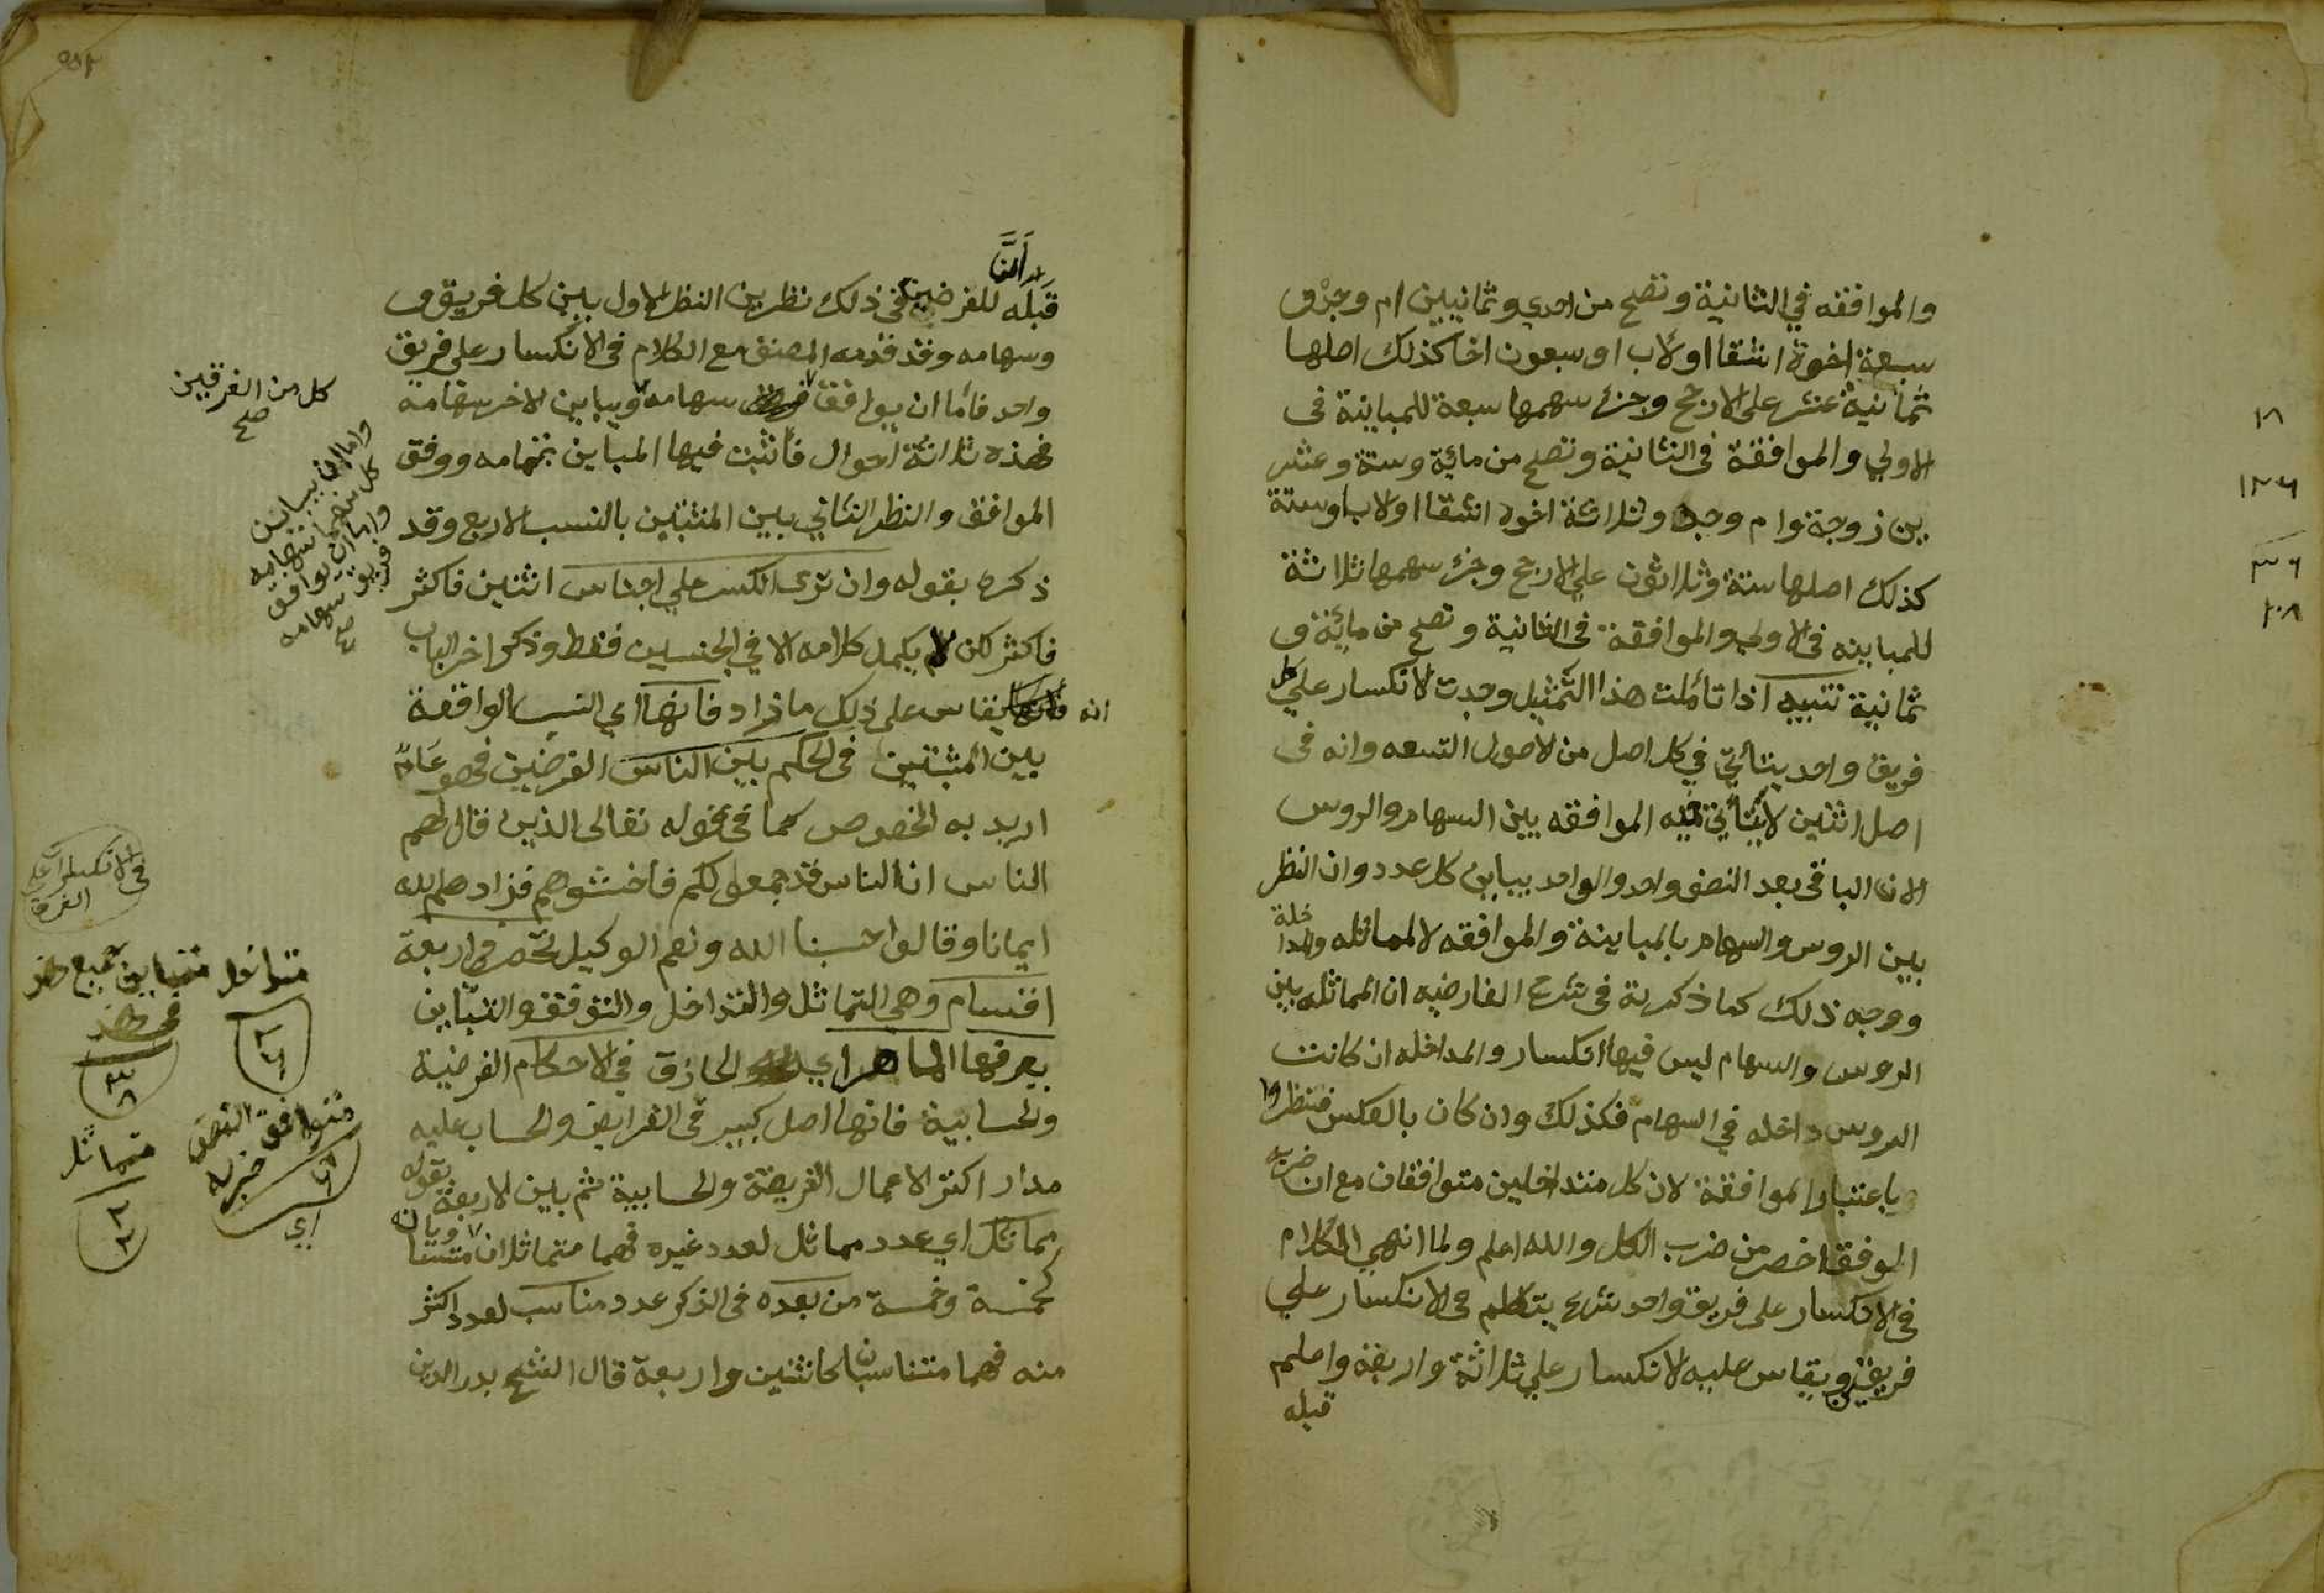 والموافقه في الثانية وتصح من احدي وثمانيين ام وجد و
سبعة اخوة اشقا او لاب او سبعون اخا كذلك اصلها
ثمانية عشر على الارجح وجزء سهمها سبعة للمباينة فى
الاولي والموافقة فى الثانية وتصح من مائة وستة وعشر
ين زوجة وام وجد وثلاثة اخوه اشقا او لاب او ستة
كذلك اصلها ستة وثلاثون علي الارجح وجزء سهمها ثلاثة
للمباينه فى الاولي والموافقة فى الثانية وتصح من مائة و
ثمانية تنبيه اذا تأملت هذا التمثيل وجدت الانكسار علي كل
فريق واحد يتأتي في كل اصل من الاصول التسعه وانه فى
اصل اثنين لا يتأتي فيه الموافقه بين السهام والروس
لان الباقى بعد النصف واحد والواحد يباين كل عدد وان النظر
بين الروس والسهام بالمباينة والموافقه لا المماثله والمداخلة
ووجه ذلك كما ذكرته فى شرح الفارضيه ان المماثله بين
الروس والسهام ليس فيها انكسار والمداخله ان كانت
الروس داخله في السهام فكذلك وان كان بالعكس فنظروا
باعتبار الموافقة لان كل متداخلين متوافقان مع ان ضرب
الوفق اخصر من ضرب الكل والله اعلم ولما انهي الكلام
فى الانكسار على فريق واحد شرع يتكلم فى الانكسار علي
فريقين ويقاس عليه الانكسار علي ثلاثة واربعة واعلم
قبله
١٨
١٢٦
٣٦
١٠٨
أنَّ
قبله للفرضيين فى ذلك نظرين النظر الاول بين كل فريق و
وسهامه وقد قدمه المصنف مع الكلام فى الانكسار على فريق
واحد فأما ان يوافق سهامه ويباين الاخر سهامه
فهذه ثلاثة احوال فأثبت فيها المباين بتمامه ووفق
الموافق والنظر الثاني بين المثبتين بالنسب الاربع وقد
ذكره بقوله وان ترى الكسر علي اجناس اثنين فاكثر
فاكثر لكن لم يكمل كلامه الا في الجنسين فقط وذكر اخر الباب
انه يقاس على ذلك ما زاد فانها اي النسب الواقعة
بين المثبتين فى الحكم بين الناس الفرضيين فهو عام
اريد به الخصوص كما فى قوله تعالى الذين قال لهم
الناس ان الناس قد جمعوا لكم فأخشوهم فزادهم الله
ايمانا وقالوا حسبنا الله ونعم الوكيل تحصر في اربعة
اقسام وهي التماثل والتداخل والتوافق والتباين
يعرفها الماهر اي الحاذق في الاحكام الفرضية
والحسابية فانها اصل كبير فى الفرايض والحساب عليه
مدار اكثر الاعمال الفريضة والحسابية ثم بين الاربعة بقوله
مماثل اي عدد مماثل لعدد غيره فهما متماثلان متساويان
كخمسة وخمسة من بعده فى الذكر عدد مناسب لعدد اكثر
منه فهما متناسبان كاثنين واربعة قال الشيخ بدر الدين
كل من الفرقين
صح
واما ان يباين
كل منهما سهامه
واما ان يوافق
فريق سهامه
صح
فى الانكسار على
الفرق
متداخل
متباين جميع
فى
متوافق النصف
ضربه
اي
متماثل